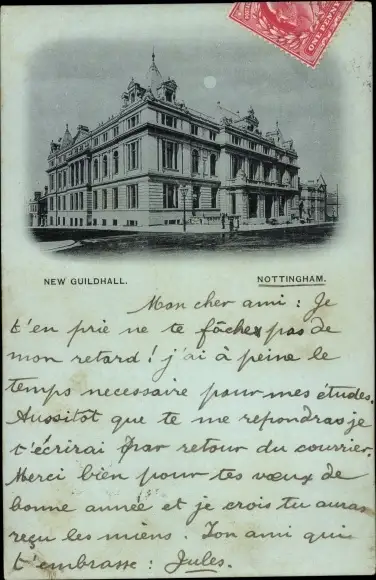 ONE PENNY
NEW GUILDHALL.
NOTTINGHAM.
Mon cher ami : Je
t'en prie ne te fâchex pas de
mon retard ! j'ai à peine le
temps necessaire pour mes études.
Aussitot que te me repondras je
t'écrirai par retour du courrier.
Merci bien pour tes vœux de
bonne année et je crois tu auras
reçu les miens. Ton ami qui
t'embrasse : Jules.